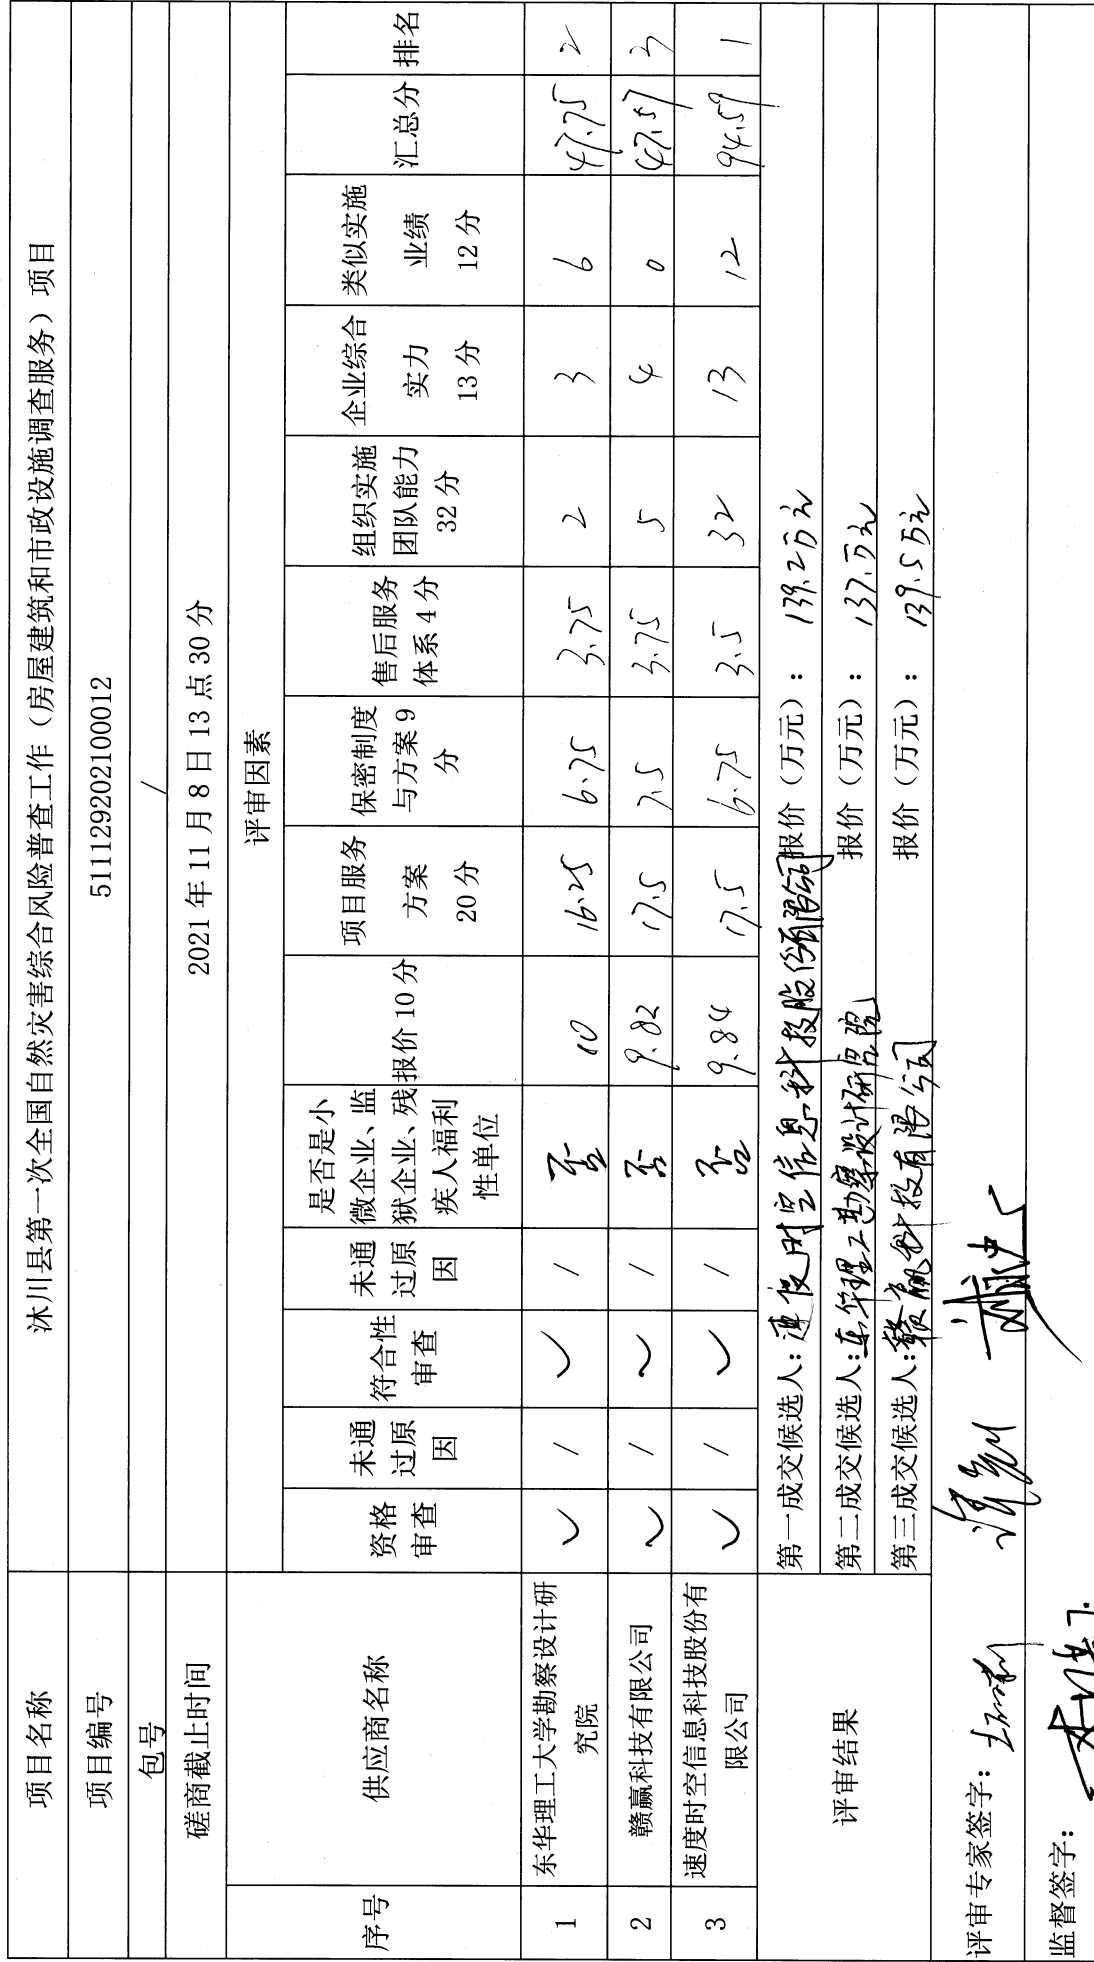 项目名称 沐川县第一次全国自然灾害综合风险普查工作（房屋建筑和市政设施调查服务）项目
项目编号 5111292021000​12
包号 /
磋商截止时间 2021年11月8日13点30分
评审因素
序号 供应商名称 资格审查 未通过原因 符合性审查 未通过原因 是否是小微企业、监狱企业、残疾人福利性单位 报价10分 项目服务方案20分 保密制度与方案9分 售后服务体系4分 组织实施团队能力32分 企业综合实力13分 类似实施业绩12分 汇总分 排名
1 东华理工大学勘察设计研究院 ✓ / ✓ / 否 10 16.25 6.75 3.75 2 3 6 47.75 2
2 赣赢科技有限公司 ✓ / ✓ / 否 9.82 17.5 7.5 3.75 5 4 0 47.57 3
3 速度时空信息科技股份有限公司 ✓ / ✓ / 否 9.84 17.5 6.75 3.5 32 13 12 94.59 1
评审结果
第一成交候选人：速度时空信息科技股份有限公司 报价（万元）： 139.2万元
第二成交候选人：东华理工勘察设计研究院 报价（万元）： 137.万元
第三成交候选人：赣赢科技有限公司 报价（万元）： 139.5万元
评审专家签字：
监督签字：